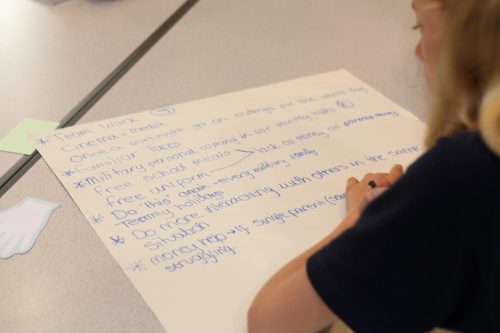 * Team work
Cinema - media
Once a fortnight go on outings for the whole day
* Familiar faces
* Military personal coming in for monthly talks
Free school meals → lack of money or parents
free uniform
* Do this again - every military family
Termly holidays
* Do more interacting with others in the same
situation
* money help → If single parent
struggling.